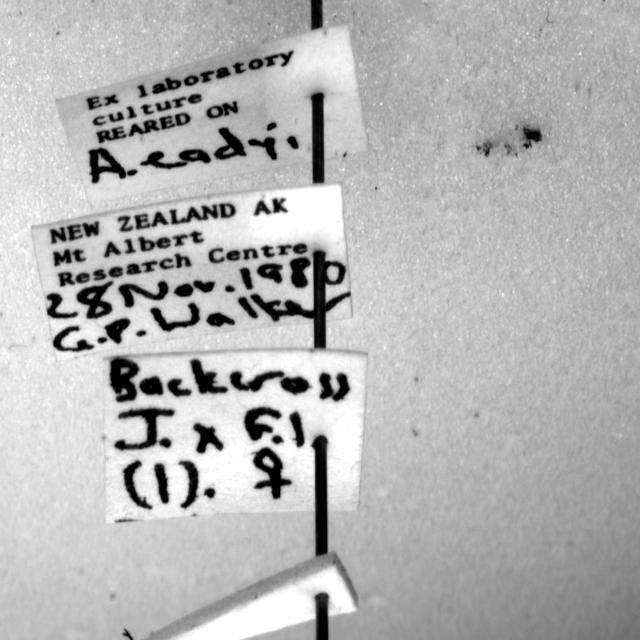 Ex laboratory
culture
REARED ON
A. eadyi.
NEW ZEALAND AK
Mt Albert
Research Centre
28 Nov. 1980
G.P. Walker
Backcross
J. x F.1
(1). ♀